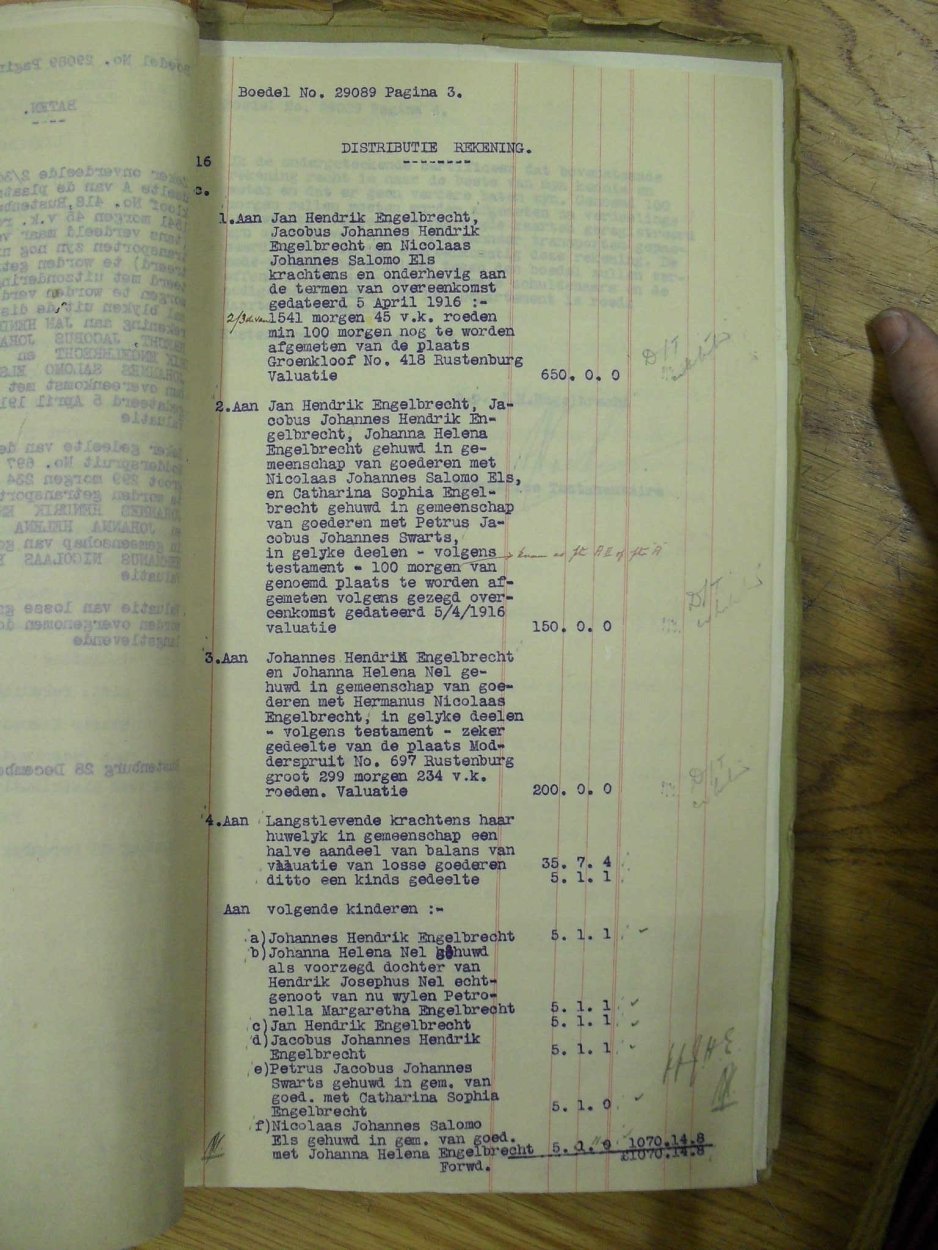 Boedel No. 29089 Pagina 3.
DISTRIBUTIE REKENING.
16
c.
1.Aan Jan Hendrik Engelbrecht,
Jacobus Johannes Hendrik
Engelbrecht en Nicolaas
Johannes Salomo Els
krachtens en onderhevig aan
de termen van overeenkomst
gedateerd 5 April 1916 :-
2/3d van 1541 morgen 45 v.k. roeden
min 100 morgen nog te worden
afgemeten van de plaats
Groenkloof No. 418 Rustenburg
Valuatie 650. 0. 0
D/T
2.Aan Jan Hendrik Engelbrecht, Ja-
cobus Johannes Hendrik En-
gelbrecht, Johanna Helena
Engelbrecht gehuwd in ge-
meenschap van goederen met
Nicolaas Johannes Salomo Els,
en Catharina Sophia Engel-
brecht gehuwd in gemeenschap
van goederen met Petrus Ja-
cobus Johannes Swarts,
in gelyke deelen - volgens
testament - 100 morgen van
genoemd plaats te worden af-
gemeten volgens gezegd over-
eenkomst gedateerd 5/4/1916
valuatie 150. 0. 0
D/T
3.Aan Johannes Hendrik Engelbrecht
en Johanna Helena Nel ge-
huwd in gemeenschap van goe-
deren met Hermanus Nicolaas
Engelbrecht, in gelyke deelen
- volgens testament - zeker
gedeelte van de plaats Mod-
derspruit No. 697 Rustenburg
groot 299 morgen 234 v.k.
roeden. Valuatie 200. 0. 0
D/T
4.Aan Langstlevende krachtens haar
huwelyk in gemeenschap een
halve aandeel van balans van
valuatie van losse goederen 35. 7. 4
ditto een kinds gedeelte 5. 1. 1
Aan volgende kinderen :-
a)Johannes Hendrik Engelbrecht 5. 1. 1
b)Johanna Helena Nel gehuwd
als voorzegd dochter van
Hendrik Josephus Nel echt-
genoot van nu wylen Petro-
nella Margaretha Engelbrecht 5. 1. 1
c)Jan Hendrik Engelbrecht 5. 1. 1
d)Jacobus Johannes Hendrik
Engelbrecht 5. 1. 1
e)Petrus Jacobus Johannes
Swarts gehuwd in gem. van
goed. met Catharina Sophia
Engelbrecht 5. 1. 0
f)Nicolaas Johannes Salomo
Els gehuwd in gem. van goed.
met Johanna Helena Engelbrecht 5. 1. 0 1070.14.8
£1070.14.8
Forwd.